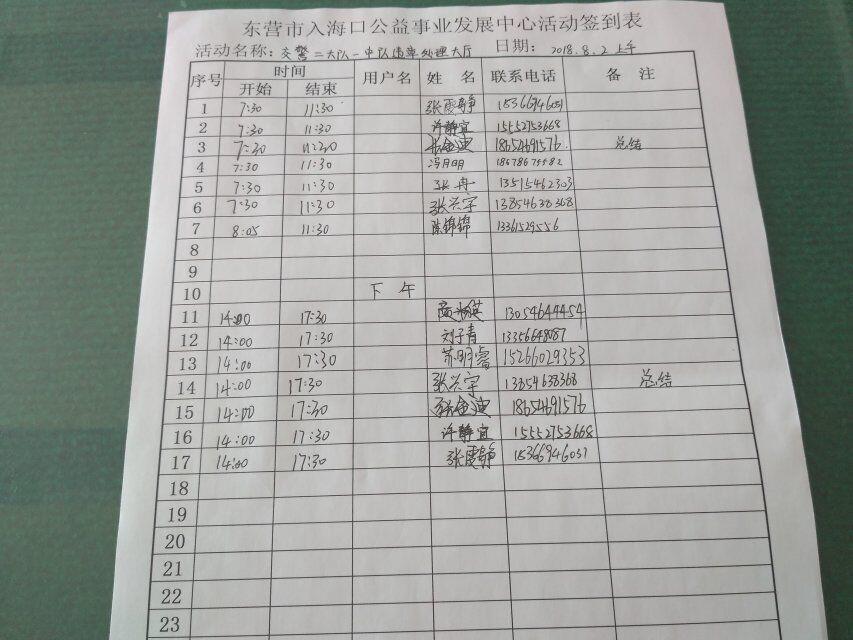 东营市入海口公益事业发展中心活动签到表
活动名称: 交警二大队一中队违章处理大厅 日期: 2018.8.2 上午
序号 时间 用户名 姓 名 联系电话 备 注
开始 结束
1 7:30 11:30 张霞静 15366946031
2 7:30 11:30 许静宜 15552753668
3 7:30 11:30 18654691576 总结
4 7:30 11:30 冯月明
5 7:30 11:30 张冉 13515462303
6 7:30 11:30 张兴宇 13854638368
7 8:05 11:30 陈锦锦 13361529556
8
9
10 下 午
11 14:00 17:30 13054644454
12 14:00 17:30 刘子青 13356648087
13 14:00 17:30 苏明睿 15266029353
14 14:00 17:30 张兴宇 13854638368 总结
15 14:00 17:30 18654691576
16 14:00 17:30 许静宜 15552753668
17 14:00 17:30 张霞静 15366946031
18
19
20
21
22
23